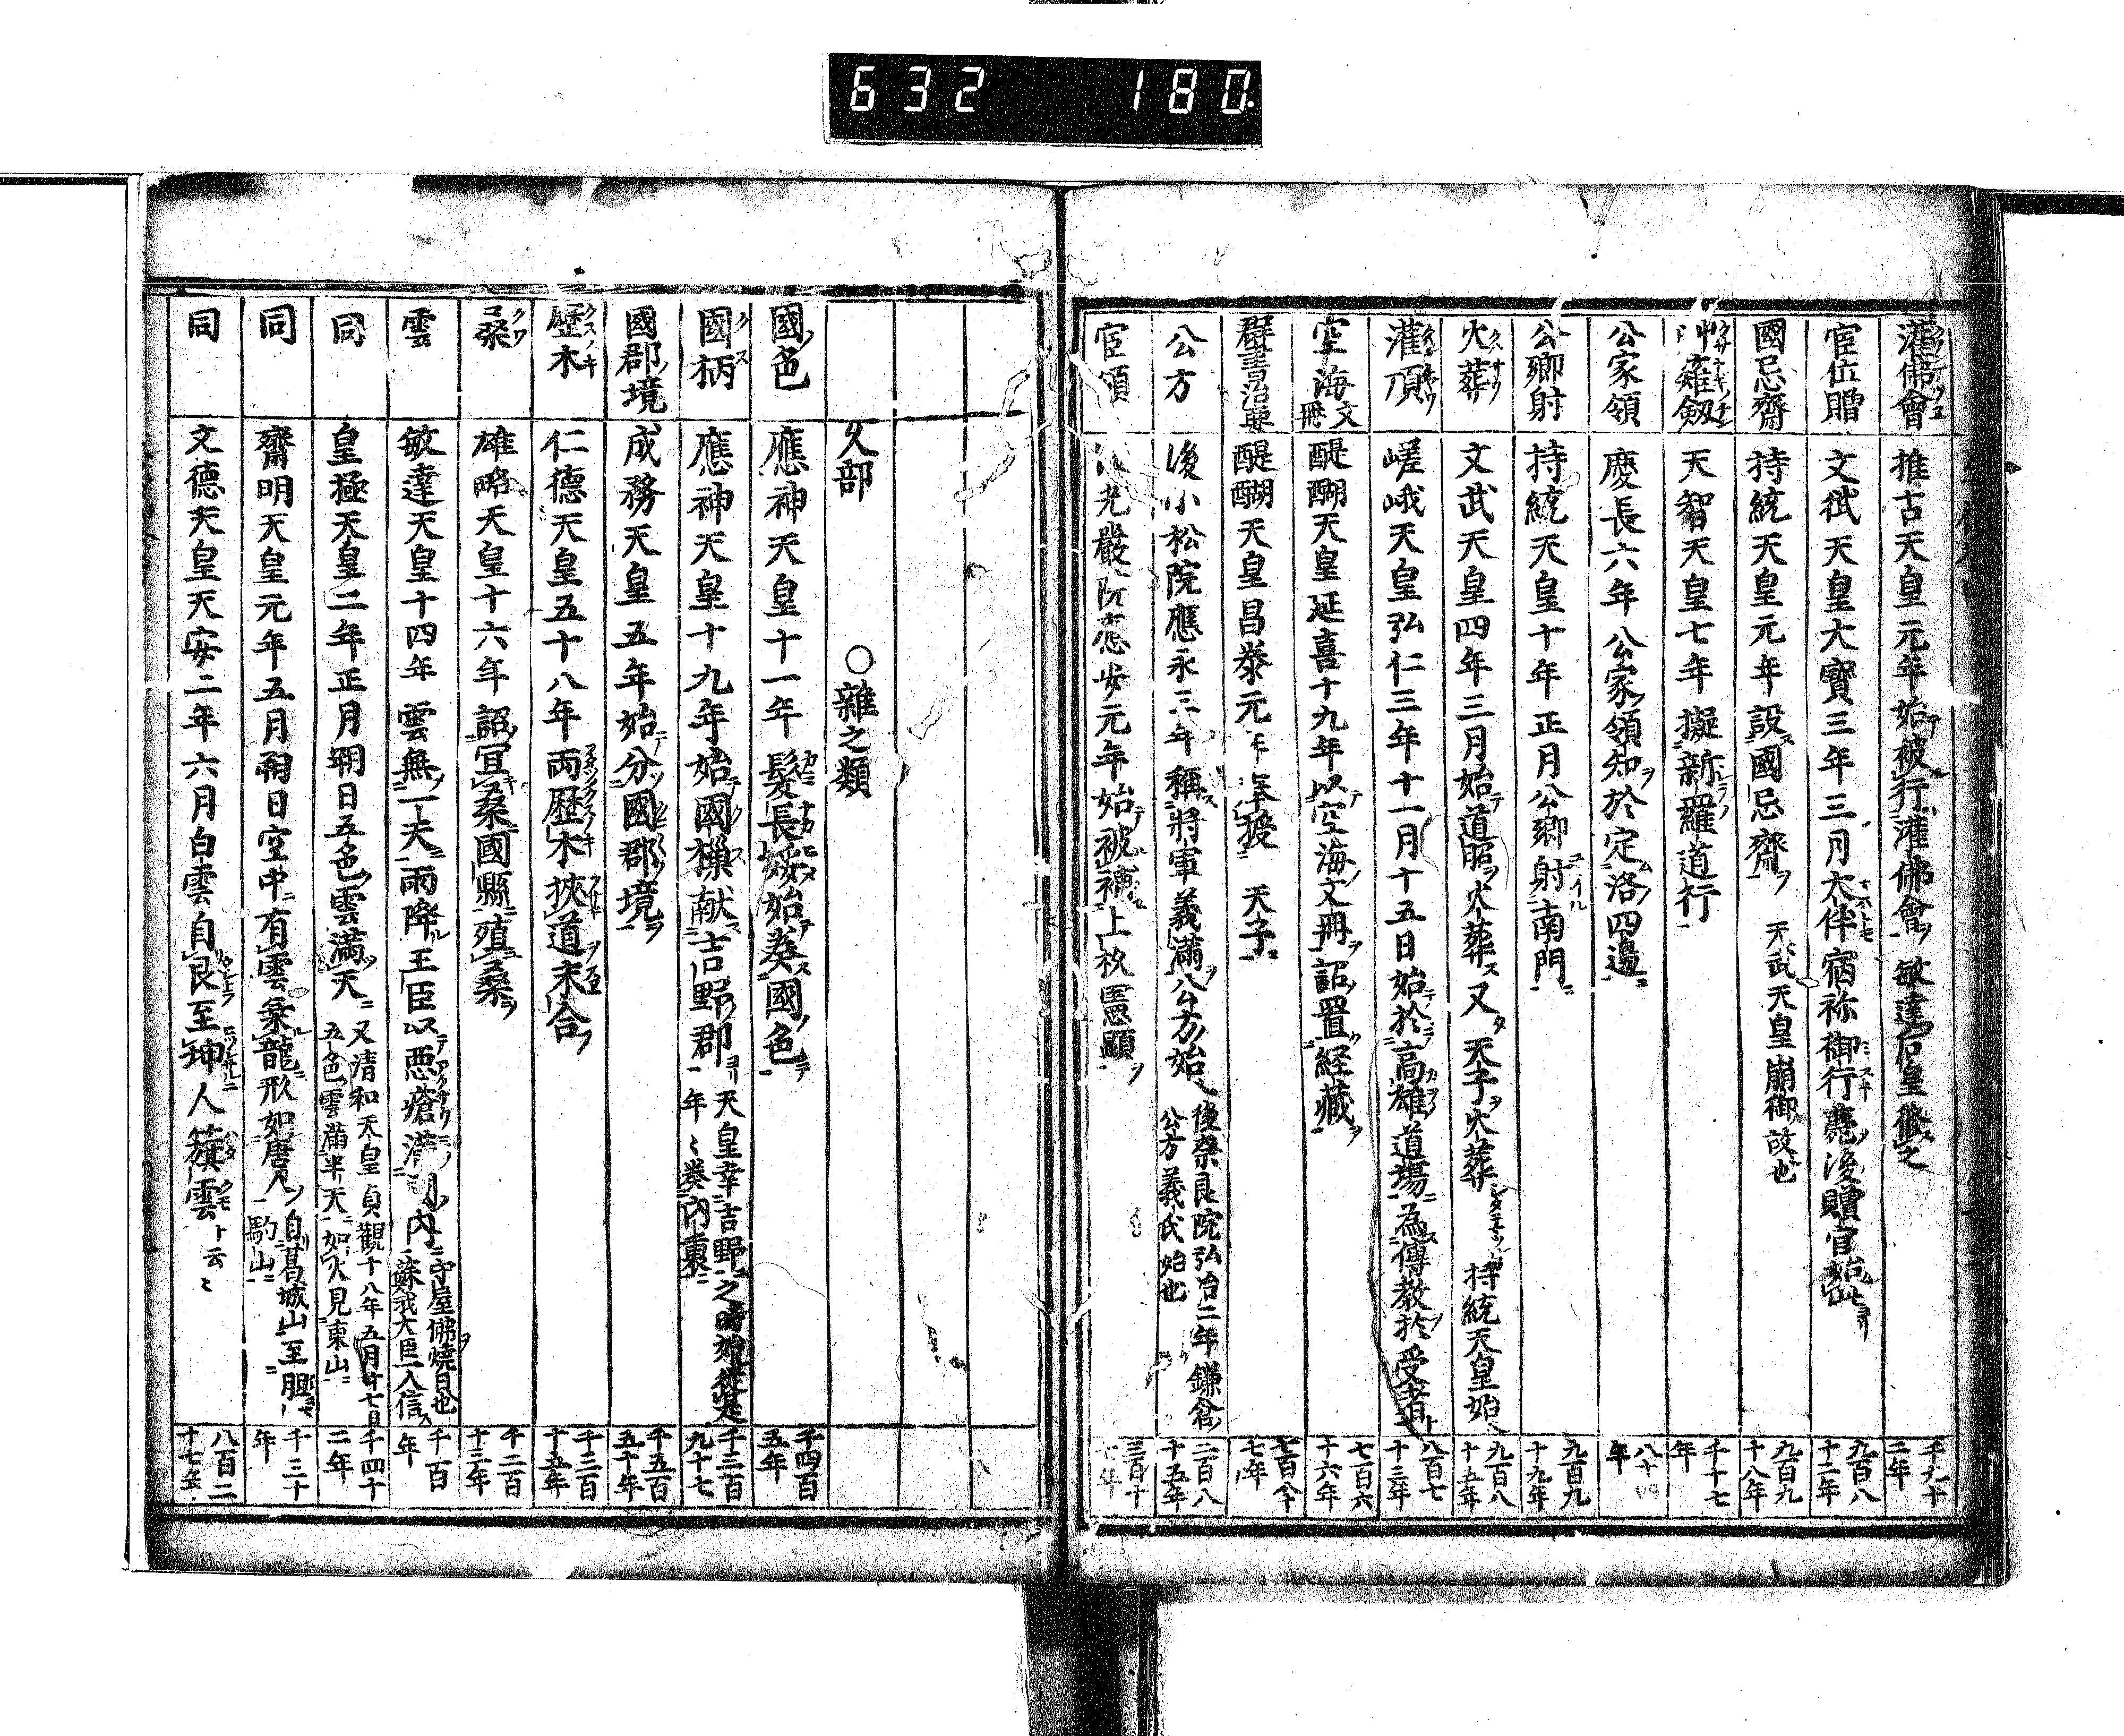 632 180.
灌佛會 推古天皇元年始被行灌佛會 敏達后皇也 千九十二年
官位贈 文武天皇大寶三年三月大伴宿祢御行薨後贈官始 九百八十二年
國忌齋 持統天皇元年設國忌齋 天武天皇崩御故也 九百九十八年
草薙劔 天智天皇七年擬新羅道行 千十七年
公家領 慶長六年公家領知於定洛四邊 八十四年
公卿射 持統天皇十年正月公卿射南門 九百九十九年
火葬 文武天皇四年三月始道昭火葬又天子火葬 持統天皇始 九百八十五年
灌頂 嵯峨天皇弘仁三年十一月十五日始於高雄道場為傳教於受者 八百七十三年
空海文冊 醍醐天皇延喜十九年以空海文冊詔置経藏 七百六十六年
群書治要 醍醐天皇昌泰元年奉授天子 七百八十七年
公方 後小松院應永三年稱將軍義滿公方始 後奈良院弘治二年鎌倉公方義氏始也 二百八十五年
官領 後光嚴院應安元年始被補上杦憲顯
久部 ○雜之類
國色 應神天皇十一年髮長媛始奏國色 千四百五年
國栖 應神天皇十九年始國樔献吉野郡 天皇幸吉野之時始從是年〻奏內裏 千三百九十七
國郡境 成務天皇五年始分國郡境 千五百五十年
歷木 仁德天皇五十八年両歷木挾道末合 千三百十五年
桑 雄略天皇十六年詔宜桑國縣殖桑 千二百十三年
雲 敏達天皇十四年雲無一天雨降王臣以悪瘡滿國內 守屋佛燒日也蘇我大臣一人信 千百年
同 皇極天皇二年正月朔日五色雲滿天 又清和天皇貞觀十八年五月廿七日五色雲滿半天如火見東山 千四十二年
同 齋明天皇元年五月朔日空中有雲乗龍形如唐人 自葛城山至膽駒山 千三十年
同 文德天皇天安二年六月白雲自艮至坤人籏雲ト云〻 八百二十七年